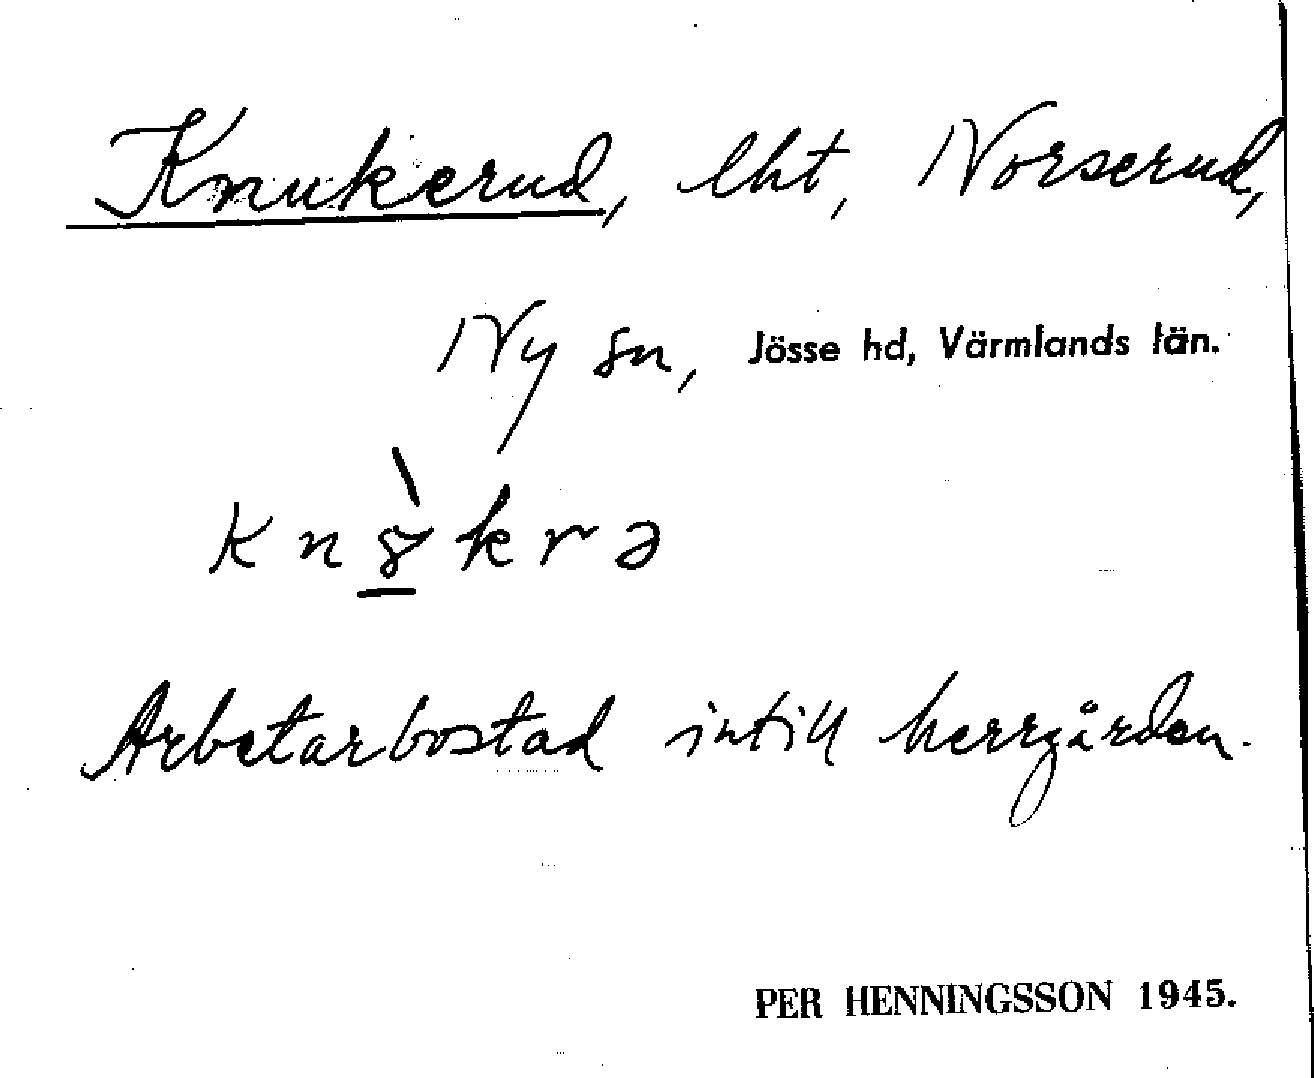 Knukerud, lht, Norserud,
Ny sn, Jösse hd, Värmlands län.
Arbetarbostad intill herrgården.
PER HENNINGSSON 1945.